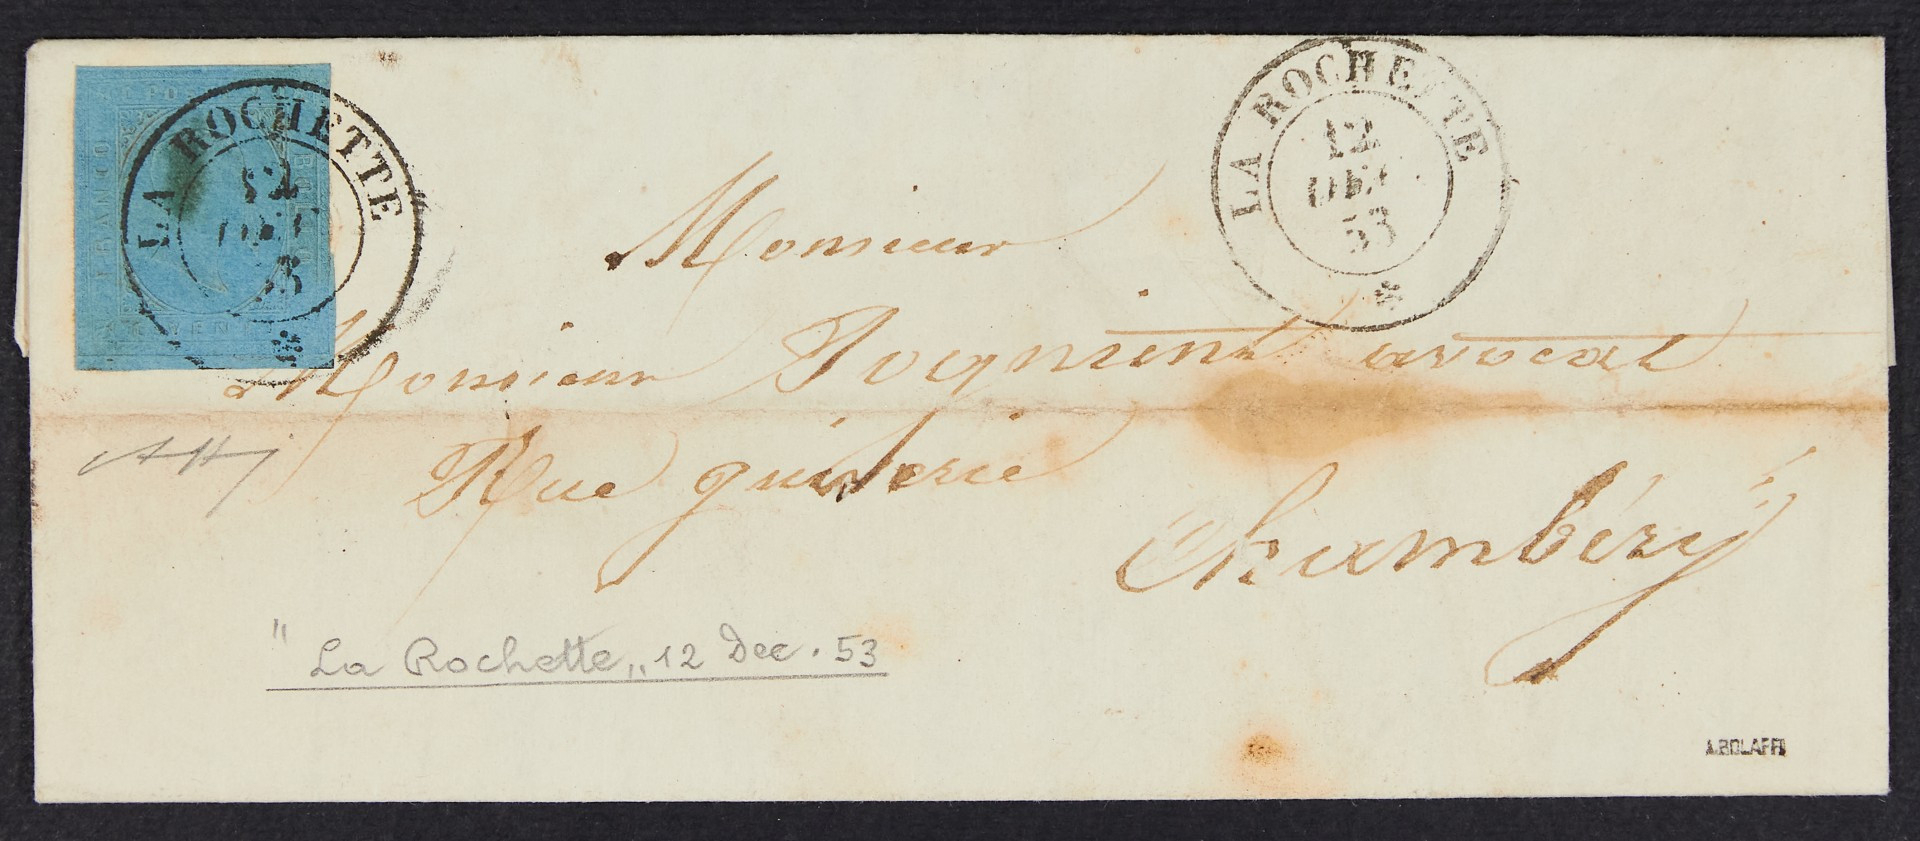 LA ROCHETTE
12
DEC
53
LA ROCHETTE
12
DEC
53
BOLLO
FRANCO
Monsieur
Monsieur avocat
Rue
Chambéry
"La Rochette„ 12 Dec. 53
A.BOLAFFI